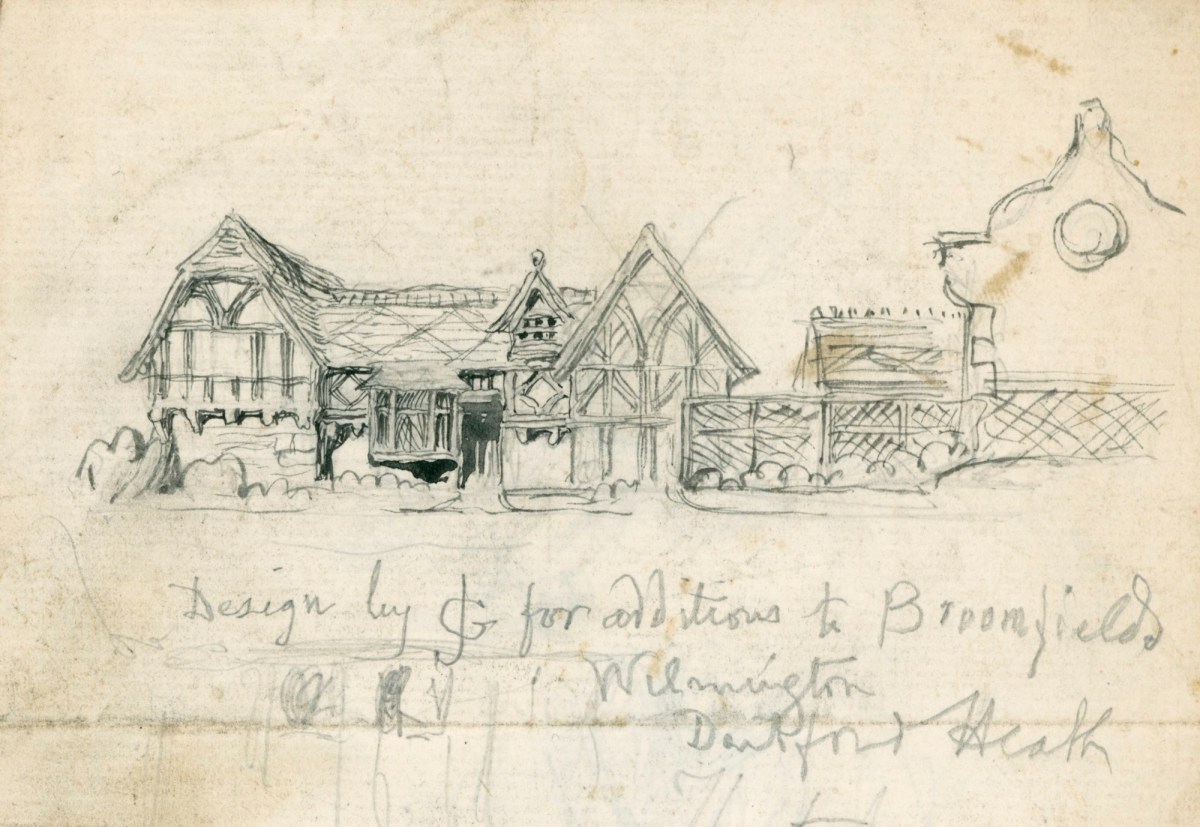 Design by JG for additions to Broomfields
Wilmington
Dartford Heath